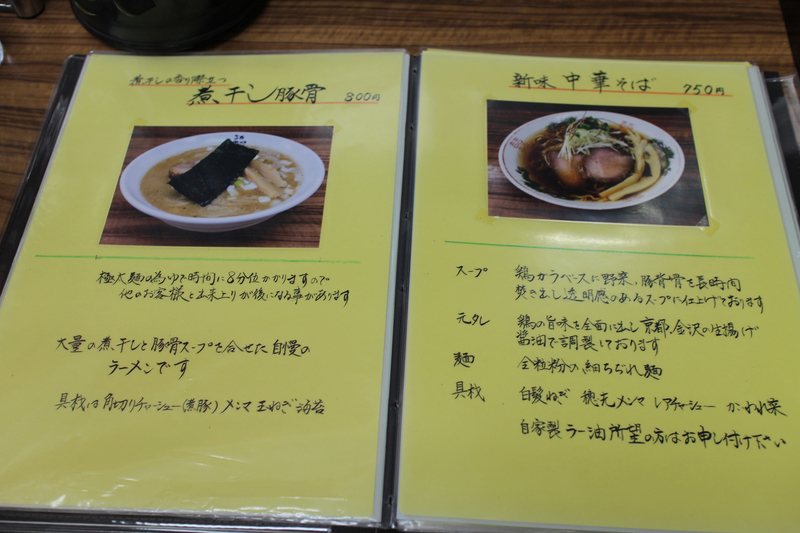 煮干しの香り際立つ
煮干し豚骨 800円
極太麺の為ゆで時間に8分位かかりますので
他のお客様と出来上りが後になる事があります
大量の煮干しと豚骨スープを合せた自慢の
ラーメンです
具材は角切りチャーシュー(煮豚)メンマ玉ねぎ海苔
新味 中華そば 750円
スープ 鶏ガラベースに野菜、豚背骨を長時間
焚き出し透明感のあるスープに仕上げております
元タレ 鶏の旨味を全面に出し京都、金沢の生揚げ
醤油で調製しております
麺 全粒粉の細ちぢれ麺
具材 白髪ねぎ 穂先メンマ レアチャーシュー かいわれ菜
自家製ラー油所望の方はお申し付け下さい